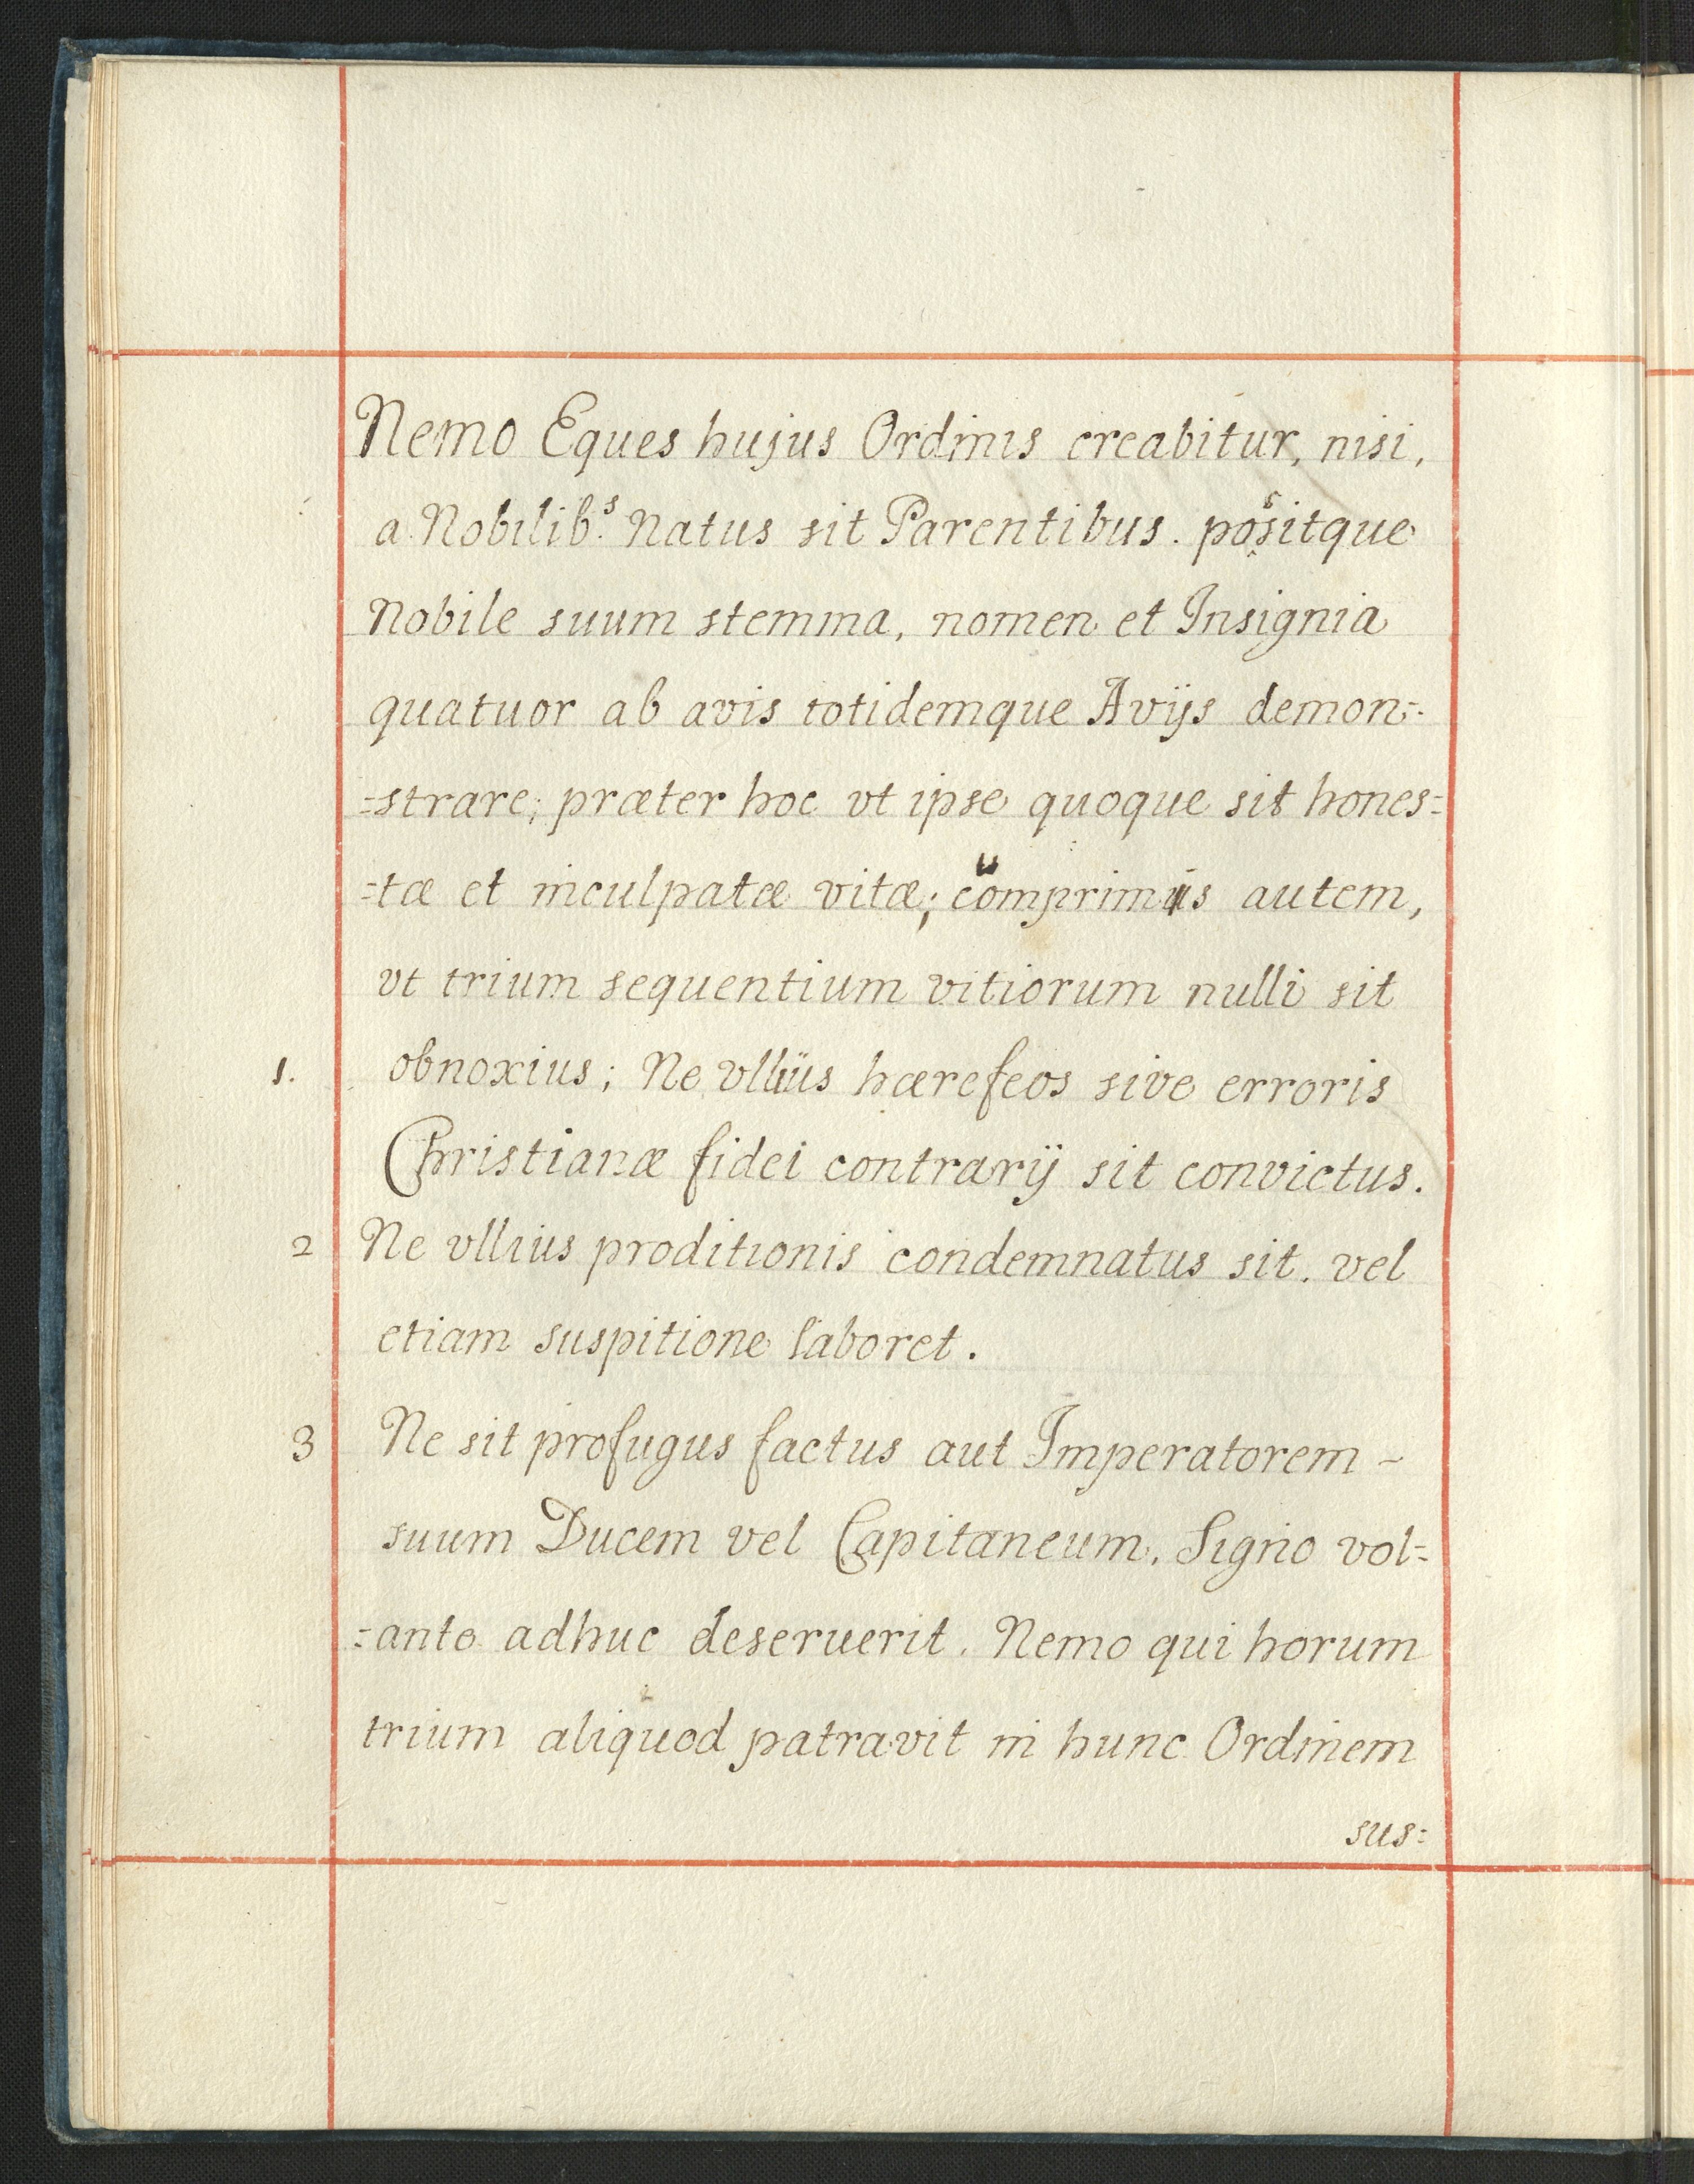 Nemo Eques hujus Ordinis creabitur, nisi,
a Nobilib.s Natus sit Parentibus. possitque
Nobile suum stemma, nomen et Insignia
quatuor ab avis totidemque Avijs demon=
=strare; præter hoc vt ipse quoque sit hones=
=tæ et inculpatæ vitæ; cumprimis autem,
vt trium sequentium vitiorum nulli sit
1. obnoxius; Ne vlliüs hæreseos sive erroris
Christianæ fidei contrarij sit convictus.
2 Ne vllius proditionis condemnatus sit. vel
etiam suspitione laboret.
3 Ne sit profugus factus aut Imperatorem ~
suum Ducem vel Capitaneum. Signo vol=
=ante adhuc deseruerit. Nemo qui horum
trium aliquod patravit in hunc Ordinem
sus=